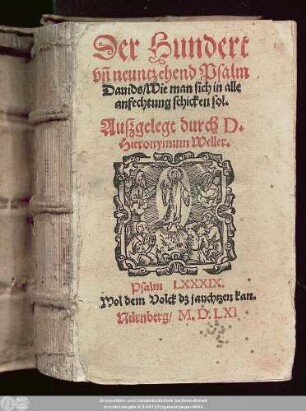 Der Hundert
vñ neuntzehend Psalm
Dauids/Wie man sich in alle
anfechtung schicken sol.
Außgelegt durch D.
Hieronymum Weller.
Psalm LXXXIX.
Wol dem Volck dz jauchtzen kan.
Nürnberg/ M. D. LXI